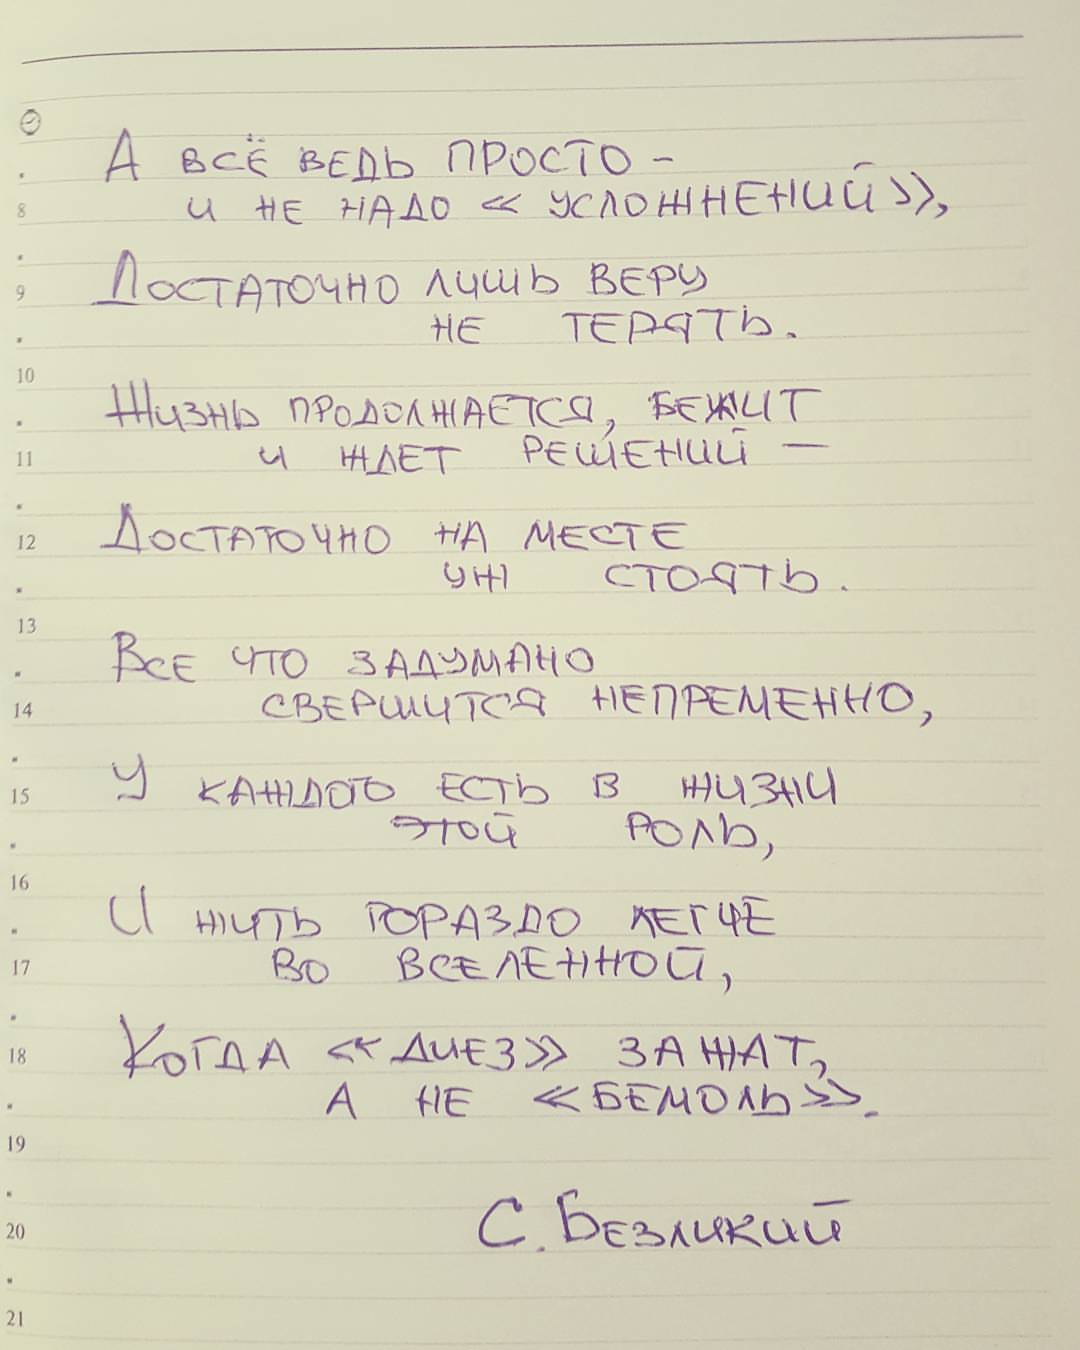 А ВСЁ ВЕДЬ ПРОСТО –
8 И НЕ НАДО « УСЛОЖНЕНИЙ»,
9 ДОСТАТОЧНО ЛИШЬ ВЕРУ
НЕ ТЕРЯТЬ.
10
ЖИЗНЬ ПРОДОЛЖАЕТСЯ, БЕЖИТ
11 И ЖДЕТ РЕШЕНИЙ —
12 ДОСТАТОЧНО НА МЕСТЕ
УЖ СТОЯТЬ.
13
ВСЕ ЧТО ЗАДУМАНО
14 СВЕРШИТСЯ НЕПРЕМЕННО,
15 У КАЖДОГО ЕСТЬ В ЖИЗНИ
ЭТОЙ РОЛЬ,
16
И ЖИТЬ ГОРАЗДО ЛЕГЧЕ
17 ВО ВСЕЛЕННОЙ,
18 КОГДА «ДИЕЗ» ЗАЖАТ,
А НЕ «БЕМОЛЬ».
19
20 С. БЕЗЛИКИЙ
21